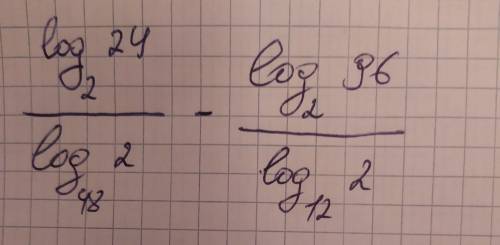 log₂ 24 / log₄₈ 2 - log₂ 96 / log₁₂ 2